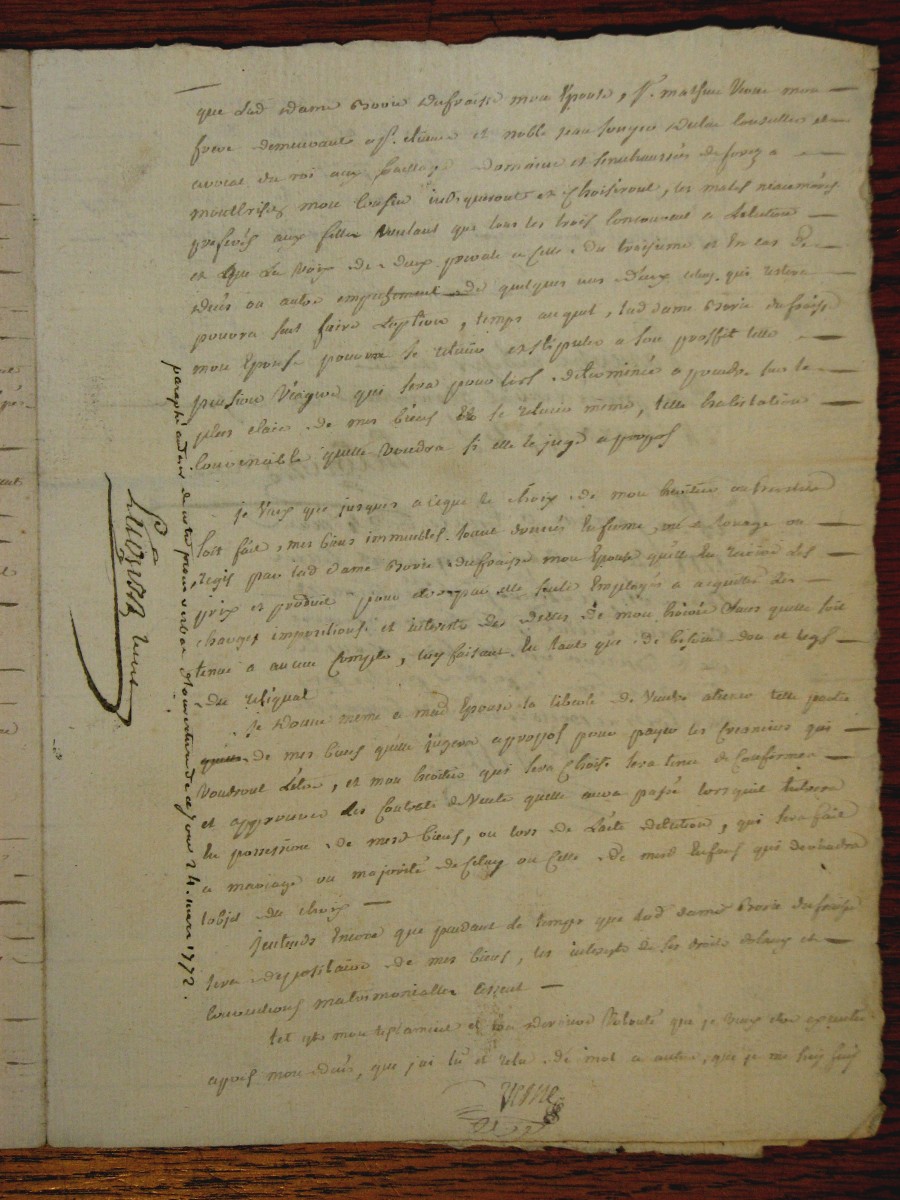 que lad dame Marie dufraisse mon Epouse, Sr. mathieu Verne mon
frere demeurant et noble jean
avocat du roi aux Baillage domaine et senechaussée de forez a
montbrison mon Cousin indiqueront et choisiront, les males neanmoins
preferés aux filles Voulant que tous les trois concourent a lelection
et que La voix de deux prevale a celle du troisieme et En cas de
deces ou autre empechement de quelques uns deux celuy qui restera
pourra seul faire loption, temps auquel, lad dame Marie dufraisse
mon Epouse pourra se retenir et stipuler a son proffit telle
pension Viagere qui sera pour lors determinée a prendre sur le
plus claire de mes biens et se retenir même, telle habitation
convenable quelle voudra si elle le juge apropos
je Veux que jusques a ceque le choix de mon heritier ou heritiere
soit fait, mes biens immeubles soient donnés En ferme, ou
regis par lad dame Marie dufraisse mon Epouse quelle En recoive les
prix et produit pour etre par elle seule Employés a acquitter les
charges impositions et interets des dettes de mon hoirie sans quelle soit
tenue a aucun Compte, luy faisant En tant que de besoin don et legs
du reliquat
je donne meme a mad Epouse la liberté de Vendre aliener telle partie
de mes biens quelle jugera apropos pour payer les creanciers qui
voudront L'etre, et mon heritier qui sera choisi sera tenu de confirmer
et approuver les Contrats de Vente quelle aura passé lorsquil Entrera
En possession de mesd biens, ou lors de l'acte delection, qui sera fait
a mariage ou majorité de Celuy ou Celle de mesd Enfans qui deviendra
lobjet du choix
jentends Encore que pendant le temps que lad dame Marie dufraisse
sera depositaire de mes biens, les interets de ses droits dotaux et
conventions matrimonialles cessent
tel est mon testament et ma derniere Volonté que je veux etre executée
apres mon deces, que j'ai lu et relu de mot a autre, que je me suis
Verne
paraphé au desir de notre procès verbal d'ouverture de ce jour 24. mars 1772.